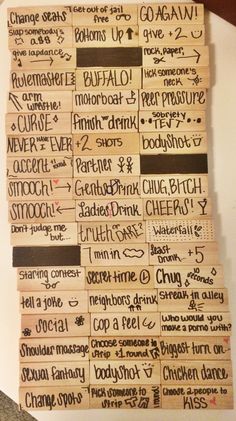 Change seats
Get out of jail free
GO AGAIN!
slap somebody's a$$
BOTTOMS UP
give +2
give lapdance
rock, paper,
Rulemaster
BUFFALO!
lick someone's neck
arm wrestle!
motorboat
Peer Pressure
CURSE
finish drink
sobriety TEST
NEVER HAVE I EVER
+2 SHOTS
bodyshot
accent round
Partner
SMOOCH!
Gents Drink
CHUG, BITCH.
SMOOCH!
Ladies Drink
CHEERS!
Don't judge me but...
truth OR DARE?
Waterfall
1 min in
least drunk +5
staring contest
secret time
Chug 10 seconds
tell a joke
neighbors drink
streak in alley
social
cop a feel
who would you make a porno with?
Shoulder massage
Choose someone to strip +1 round
Biggest turn on
Sexual fantasy
bodyshot
Chicken dance
Change spots
Pick someone to strip 1 round
Choose 2 people to KISS